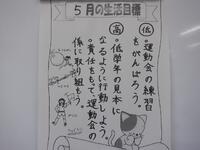 5月の生活目標
低・運動会の練習
をがんばろう。
高・低学年の見本に
なるように行動しよう。
・責任をもって、運動会の
係に取り組もう。